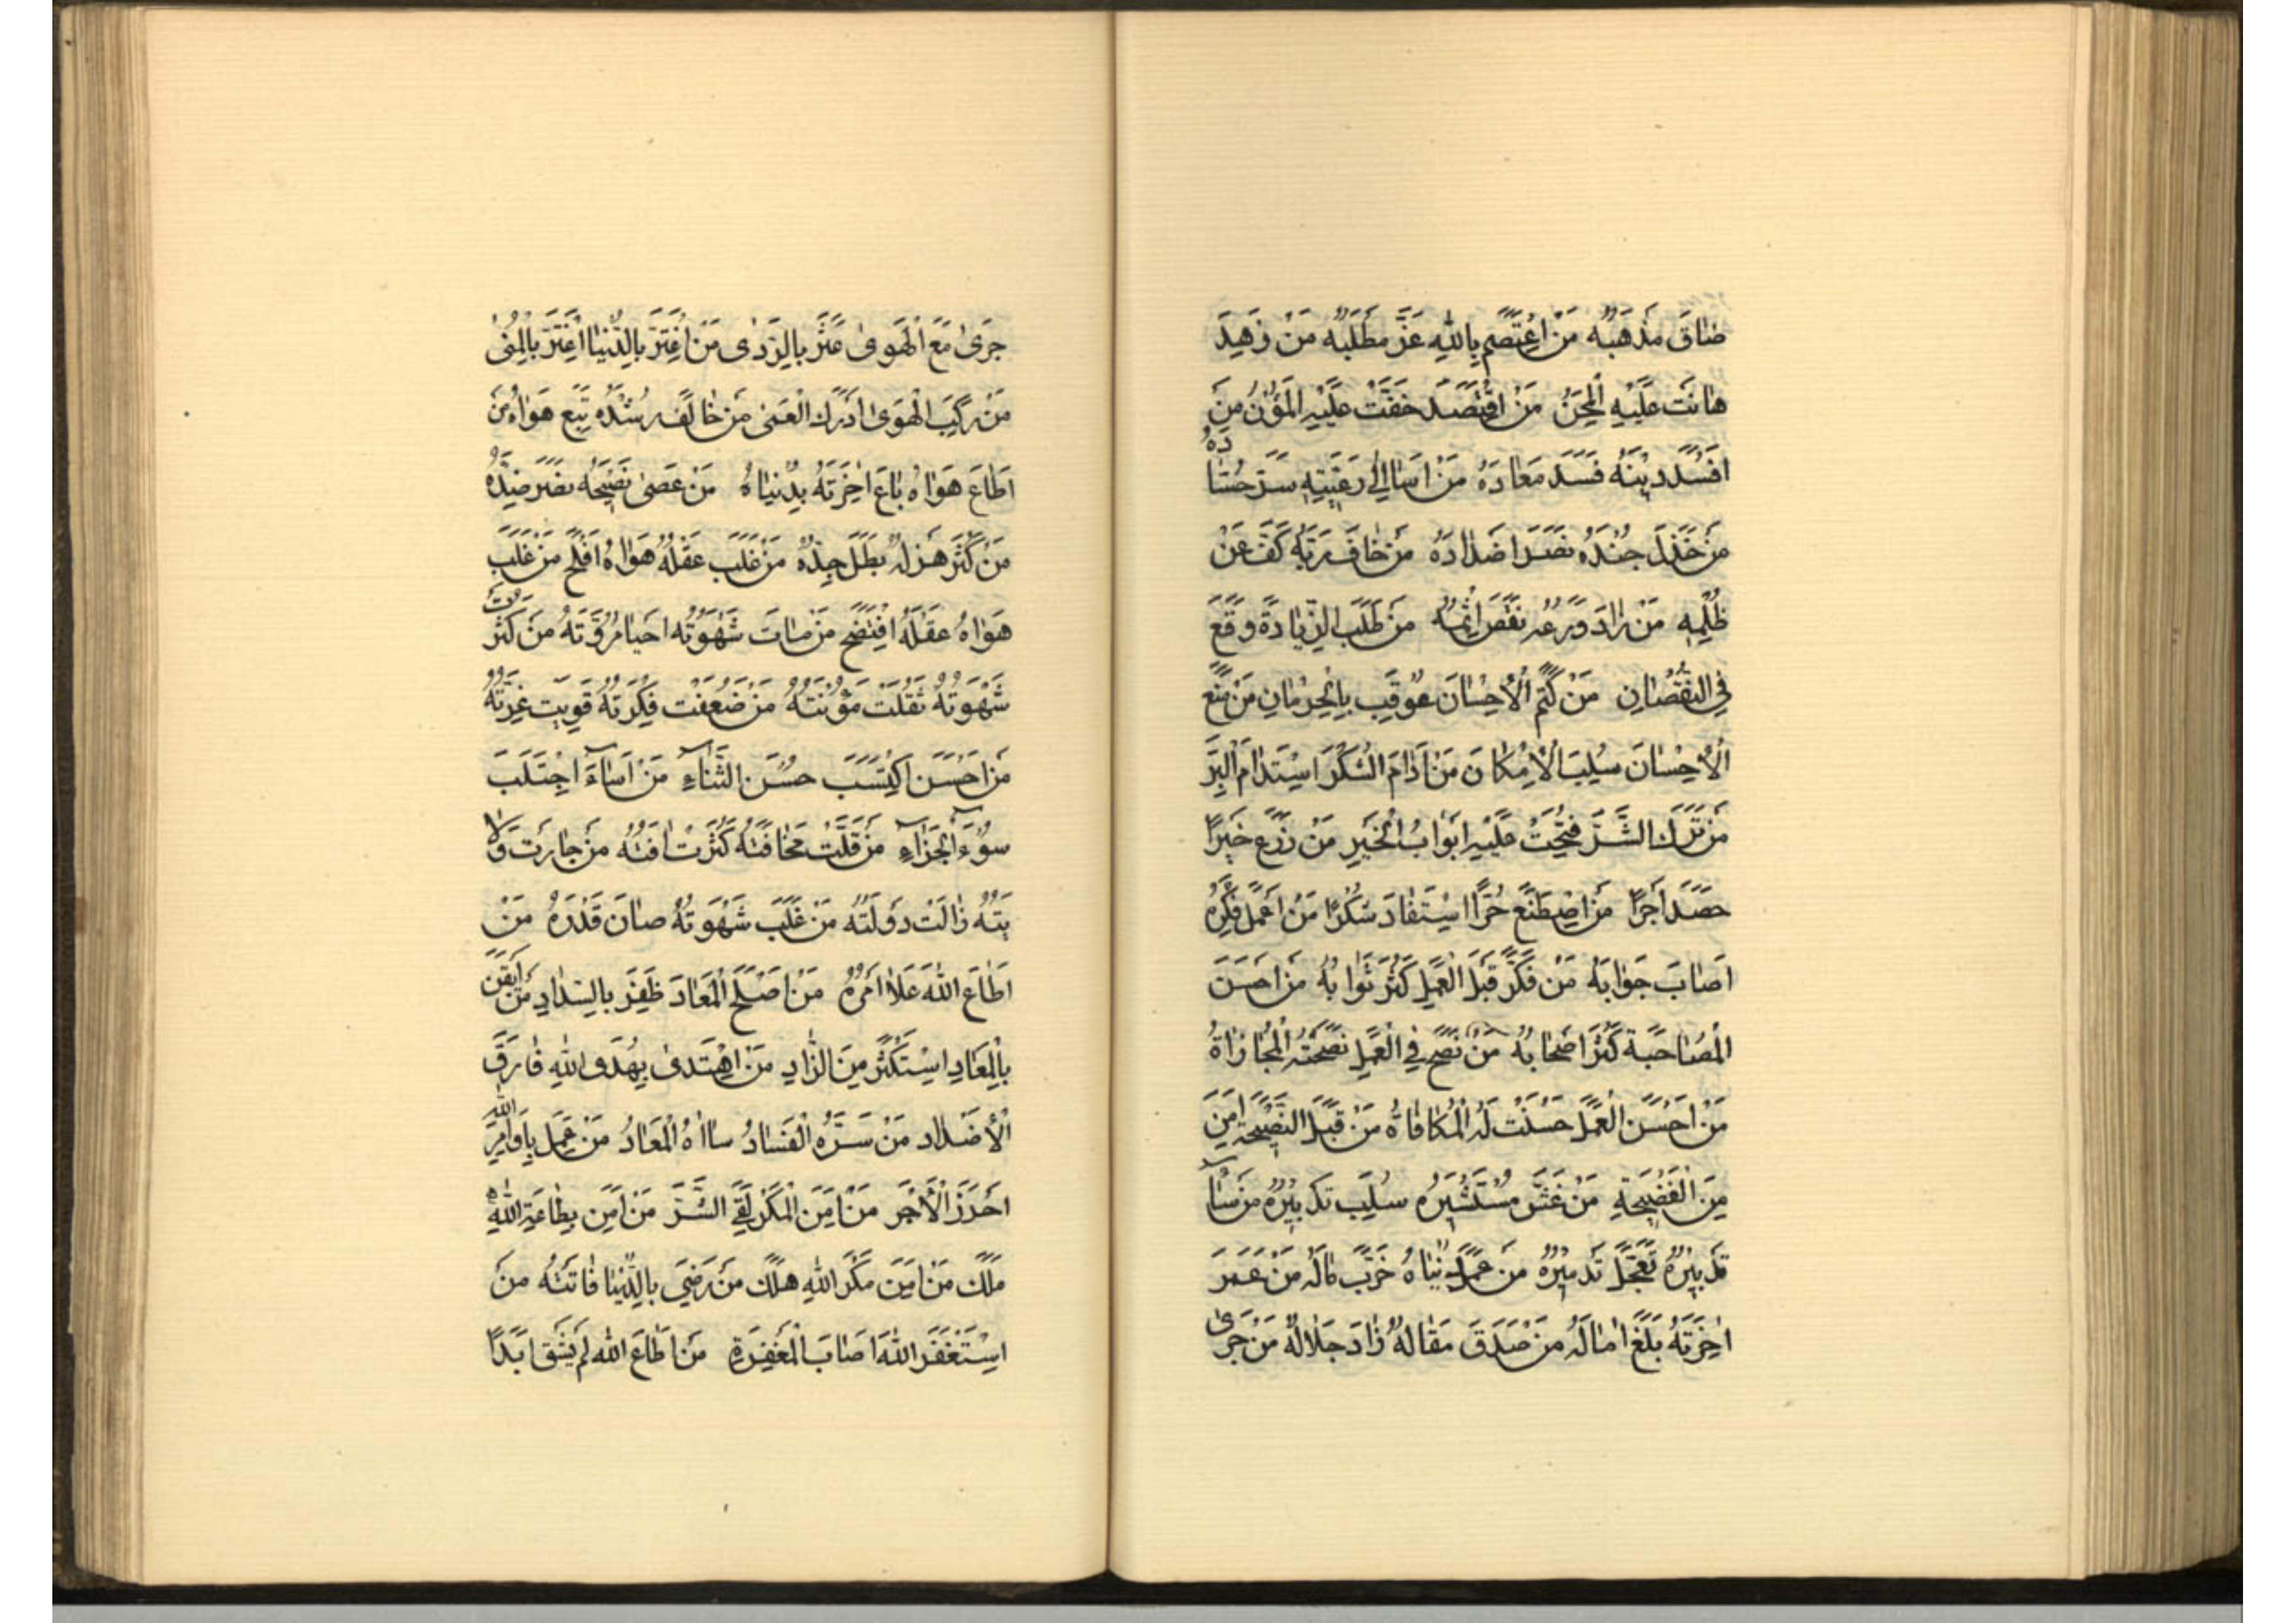 ضاقَ مَذْهَبُهُ مَنْ اعْتَصَمَ بِاللهِ عَزَّ مَطْلَبُهُ مَنْ زَهِدَ
هانَتْ عَلَيْهِ الْمِحَنُ مَنْ اقْتَصَدَ خَفَّتْ عَلَيْهِ الْمُؤَنُ مَنْ
افْسَدَ دينَهُ فَسَدَ مَعادَهُ مَنْ اَسٰا اِلیٰ رَعِيَّتِهِ سَرَّ حُسّادَهُ
مَنْ خَذَلَ جُنْدَهُ نَصَرَ اَضْدادَهُ مَنْ خافَ رَبَّهُ كَفَّ عَنْ
ظُلْمِهِ مَنْ زادَ وَرَعُهُ نَقَصَ اِثْمُهُ مَنْ طَلَبَ الزِّيادَةَ وَقَعَ
فِي النُّقْصانِ مَنْ كَتَمَ الْاِحْسانَ عُوقِبَ بِالْحِرْمانِ مَنْ مَنَعَ
الْاِحْسانَ سُلِبَ الْاِمْكانَ مَنْ اَدامَ الشُّكْرَ اسْتَدامَ الْبِرَّ
مَنْ تَرَكَ الشَّرَّ فُتِحَتْ عَلَيْهِ اَبْوابُ الْخَيْرِ مَنْ زَرَعَ خَيْرًا
حَصَدَ اَجْرًا مَنْ اصْطَنَعَ حُرًّا اسْتَفادَ شُكْرًا مَنْ اَعْمَلَ فِكْرَهُ
اَصابَ جَوابَهُ مَنْ فَكَّرَ قَبْلَ الْعَمَلِ كَثُرَ ثَوابُهُ مَنْ اَحْسَنَ
الْمُصاحَبَةَ كَثُرَ اَصْحابُهُ مَنْ نَصَحَ فِي الْعَمَلِ نَصَحَتْهُ الْمُجازاةُ
مَنْ اَحْسَنَ الْعَمَلَ حَسُنَتْ لَهُ الْمُكافاةُ مَنْ قَبِلَ النَّصيحَةَ اَمِنَ
مِنَ الْفَضيحَةِ مَنْ غَشَّ مُسْتَشيرَهُ سُلِبَ تَدْبيرُهُ مَنْ سٰآ
تَدْبيرُهُ تَعَجَّلَ تَدْميرُهُ مَنْ عَمَرَ دُنْياهُ خَرَّبَ مالَهُ مَنْ عَمَرَ
اٰخِرَتَهُ بَلَغَ اٰمالَهُ مَنْ صَدَقَ مَقالُهُ زادَ جَلالُهُ مَنْ جَرىٰ
جَرىٰ مَعَ الْهَوىٰ عَثَرَ بِالرَّدىٰ مَنْ اغْتَرَّ بِالدُّنْيا اغْتَرَّ بِالْمُنىٰ
مَنْ رَكِبَ الْهَوىٰ اَدْرَكَ الْعَمىٰ مَنْ خالَفَ رُشْدَهُ تَبِعَ هَواهُ مَنْ
اَطاعَ هَواهُ باعَ اٰخِرَتَهُ بِدُنْياهُ مَنْ عَصىٰ نَصيحَهُ نَصَرَ ضِدَّهُ
مَنْ كَثُرَ هَزْلُهُ بَطَلَ جِدُّهُ مَنْ غَلَبَ عَقْلُهُ هَواهُ اَفْلَحَ مَنْ غَلَبَ
هَواهُ عَقْلَهُ افْتَضَحَ مَنْ ماتَ شَهْوَتُهُ اَحْيا مُرُوَّتَهُ مَنْ كَثُرَتْ
شَهْوَتُهُ ثَقُلَتْ مَؤُنَتُهُ مَنْ ضَعُفَتْ فِكْرَتُهُ قَوِيَتْ غِرَّتُهُ
مَنْ اَحْسَنَ اكْتَسَبَ حُسْنَ الثَّناٰءِ مَنْ اَساٰءَ اجْتَلَبَ
سُوٓءَ الْجَزآءِ مَنْ قَلَّتْ مَخافَتُهُ كَثُرَتْ اٰفَتُهُ مَنْ جارَتْ وَلا
يَتُهُ زالَتْ دَوْلَتُهُ مَنْ غَلَبَ شَهْوَتَهُ صانَ قَدْرَهُ مَنْ
اَطاعَ اللهَ عَلا اَمْرُهُ مَنْ اَصْلَحَ الْمَعادَ ظَفَرَ بِالسَّدادِ مَنْ اَيْقَنَ
بِالْمَعادِ اسْتَكْثَرَ مِنَ الزّادِ مَنْ اهْتَدىٰ بِهُدَى اللهِ فارَقَ
الْاَضْدادَ مَنْ سَرَّهُ الْفَسادُ ساٰاهُ الْمَعادُ مَنْ عَمِلَ بِاَوامِرِ اللهِ
اَحْرَزَ الْاَجْرَ مَنْ اَمِنَ الْمَكْرَ لَقِيَ الشَّرَّ مَنْ اَمِنَ بِطاعَةِ اللهِ
مَلَكَ مَنْ اَمِنَ مَكْرَ اللهِ هَلَكَ مَنْ رَضِيَ بِالدُّنْيا فاتَتْهُ مَنْ
اسْتَغْفَرَ اللهَ اَصابَ الْمَغْفِرَةَ مَنْ اَطاعَ اللهَ لَمْ يَشْقَ اَبَدًا